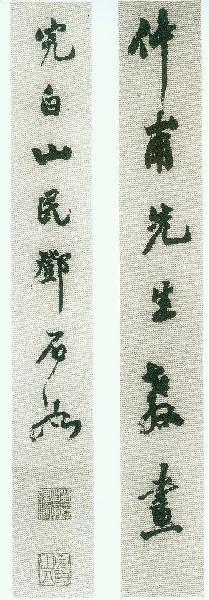 仲甫先生教畫
完白山民鄧石如